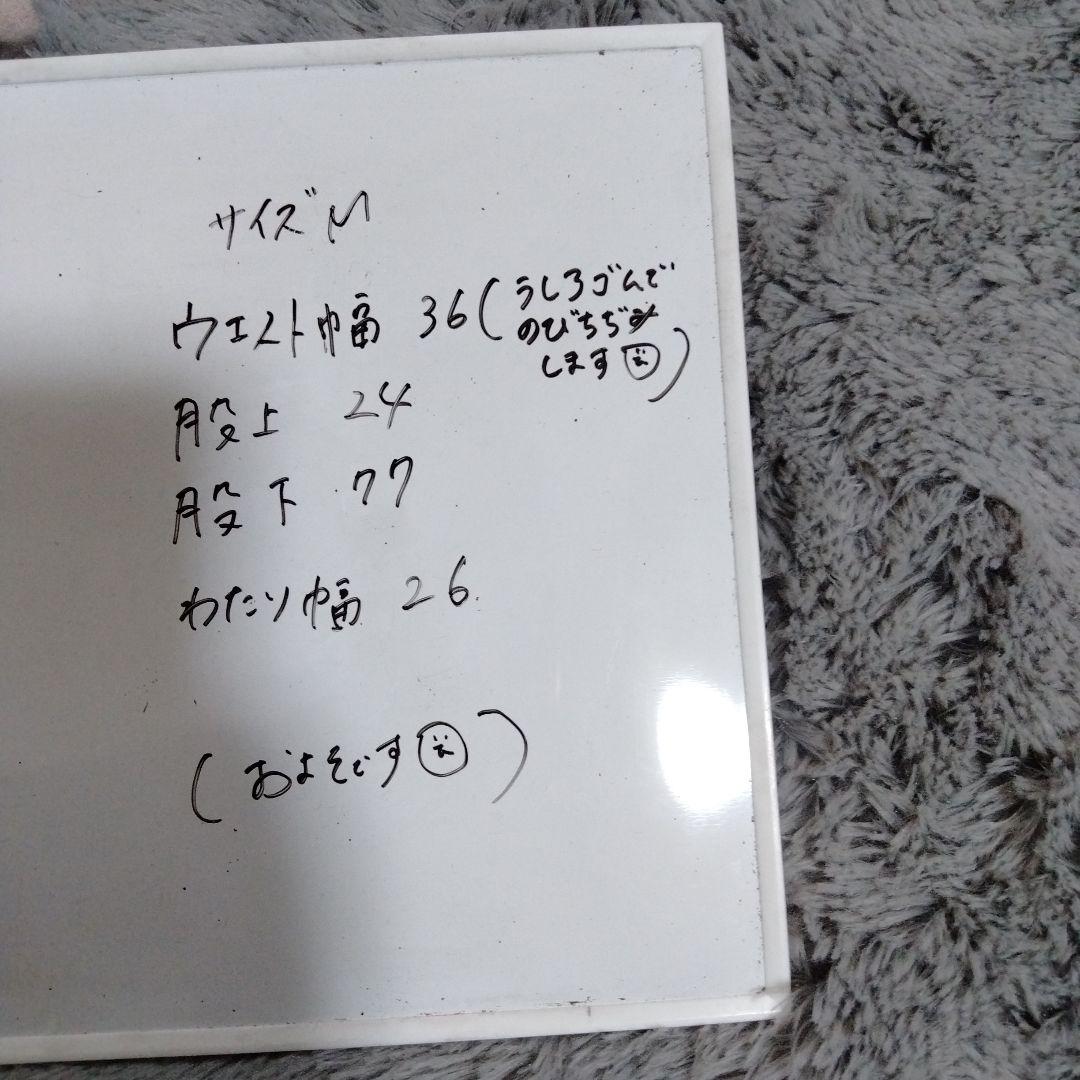 サイズ M
ウエスト幅 36(うしろゴムで
のびちぢみ
します)
股上 24
股下 77
わたり幅 26
(およそです)